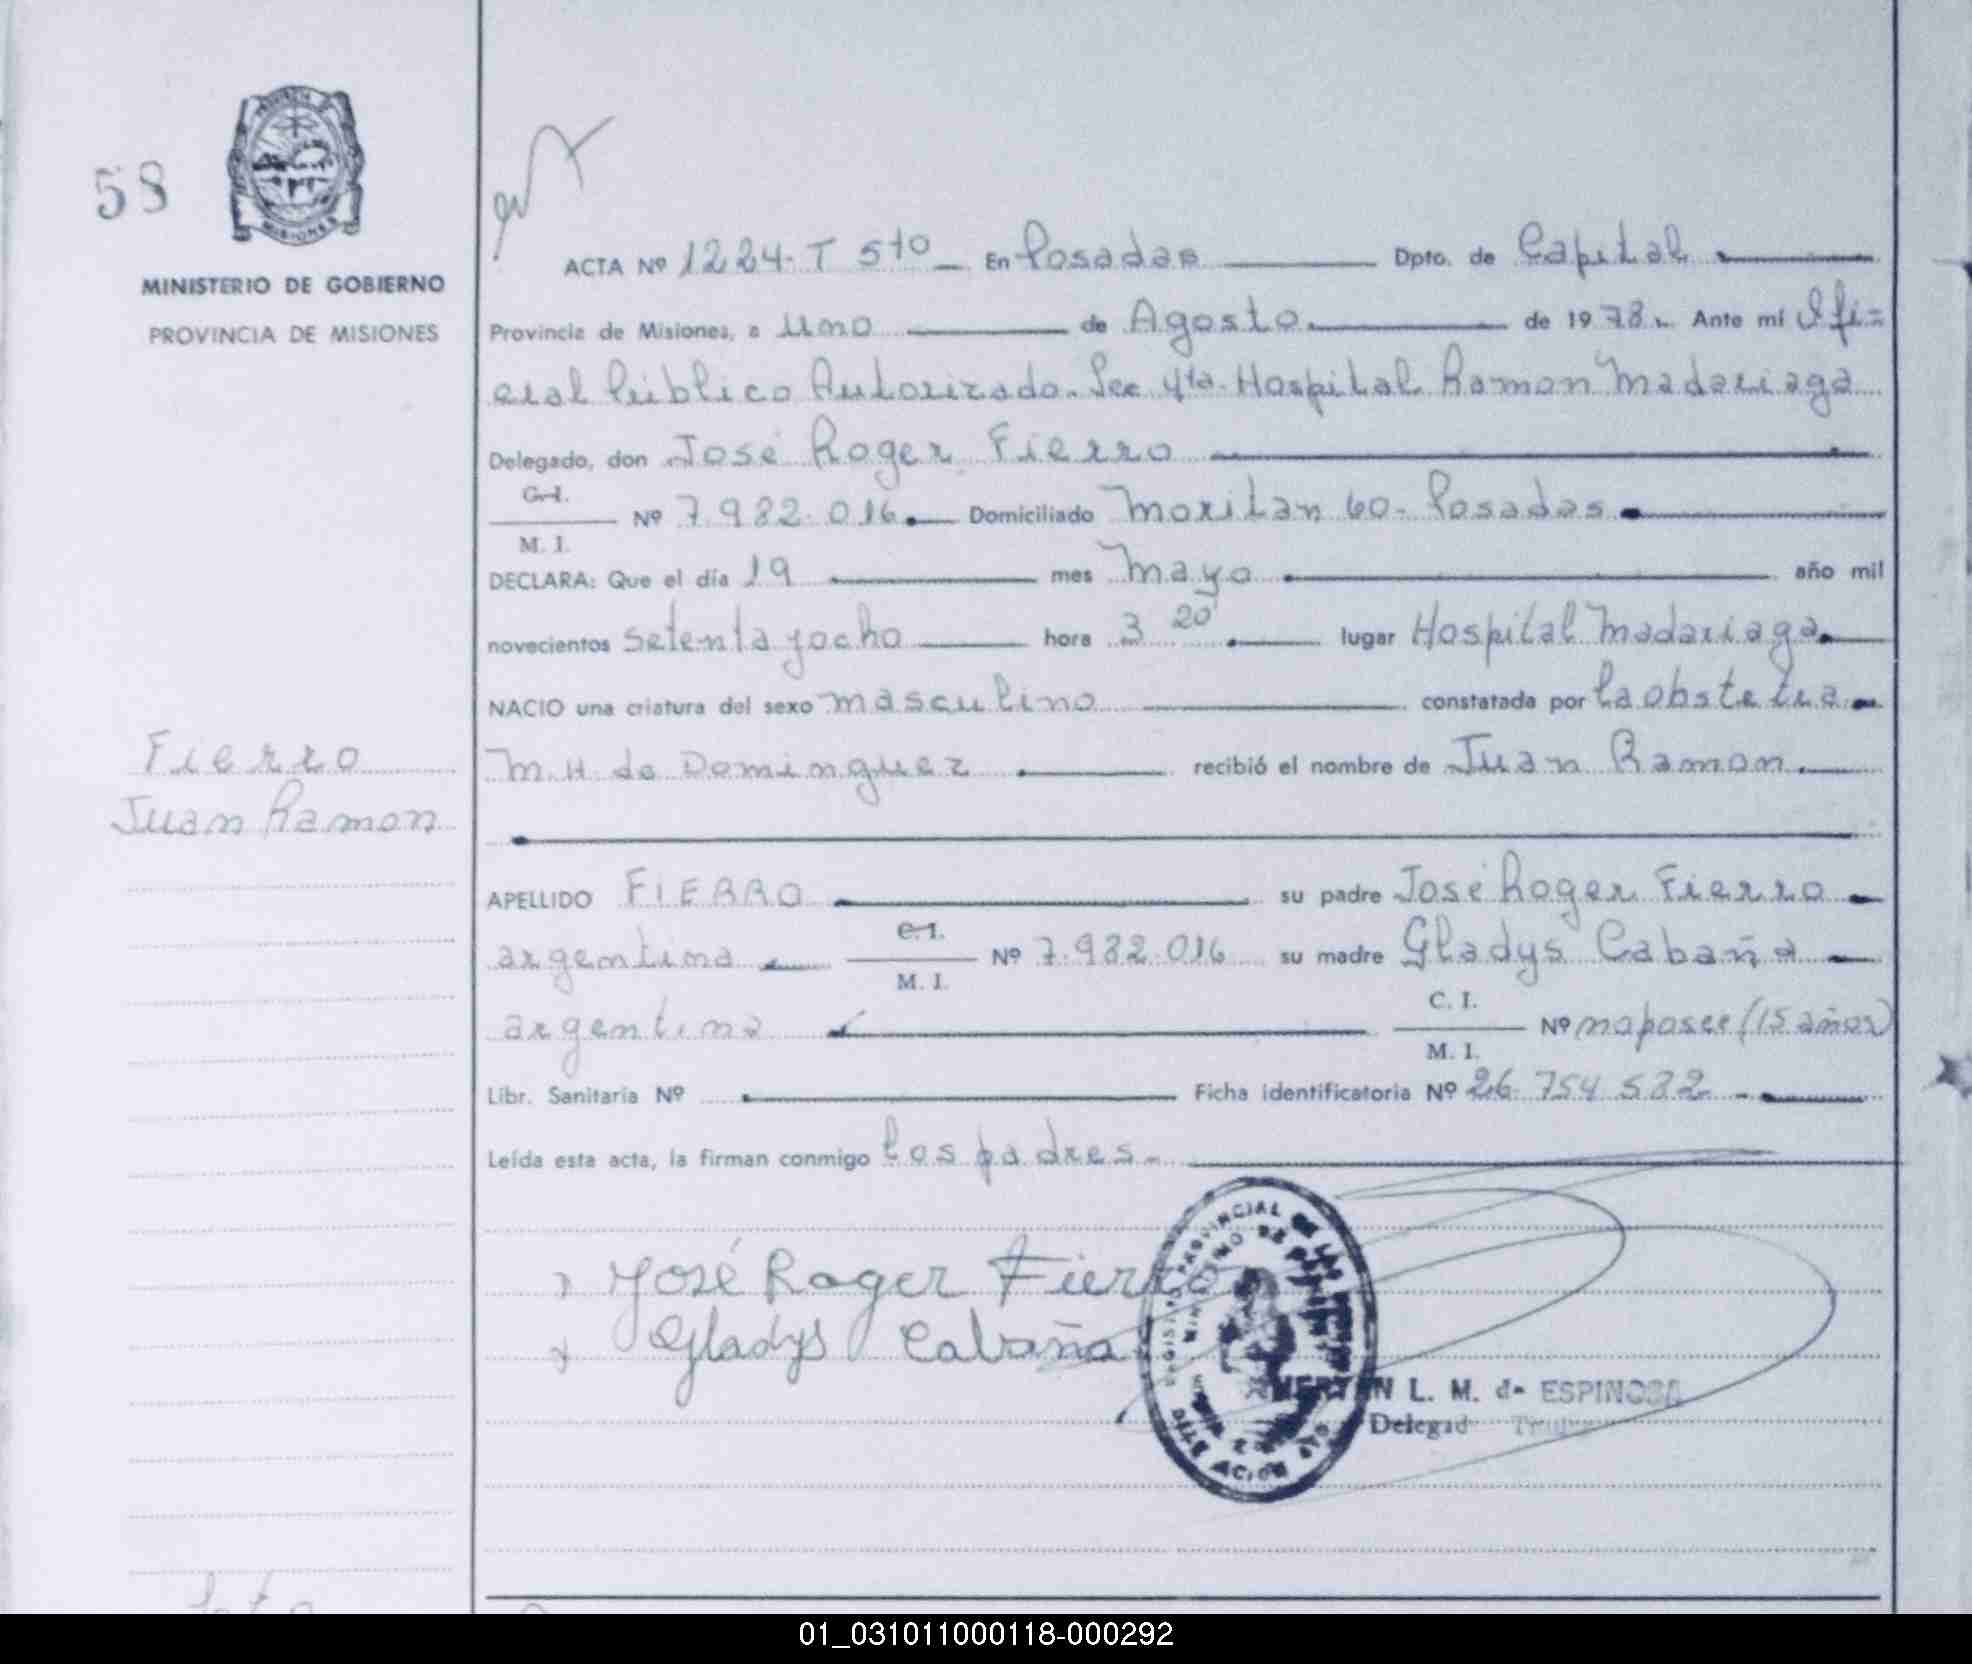 58
PROVINCIA DE
MISIONES
MINISTERIO DE GOBIERNO
PROVINCIA DE MISIONES
ACTA Nº 1224-T 5to En Posadas Dpto. de Capital
Provincia de Misiones, a uno de Agosto de 1978. Ante mí Ofi=
cial Público Autorizado. Sec 4ta. Hospital Ramon Madariaga
Delegado, don José Roger Fierro
C.I.
M. I.
Nº 7.982.016. Domiciliado 60- Posadas
DECLARA: Que el día 19 mes Mayo año mil
novecientos setenta y ocho hora 3 20' lugar Hospital Madariaga
NACIO una criatura del sexo masculino constatada por la obstetra
M. H. de Dominguez recibió el nombre de Juan Ramon
Fierro
Juan Ramon
APELLIDO FIERRO su padre José Roger Fierro
argentino
C.I.
M. I.
Nº 7.982.016 su madre Gladys Cabaña
argentina
C. I.
M. I.
Nº no posee (15 años)
Libr. Sanitaria Nº Ficha identificatoria Nº 26.754.532
Leída esta acta, la firman conmigo los padres.
José Roger Fierro
Gladys Cabaña
PROVINCIAL DE LAS
L. M. de ESPINOSA
Delegad Titular
01_031011000118-000292